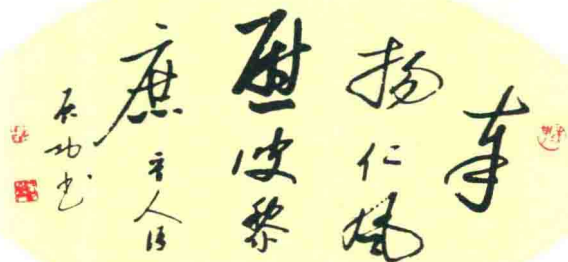 奉
扬仁风
慰彼黎
庶 晋人语
启功书